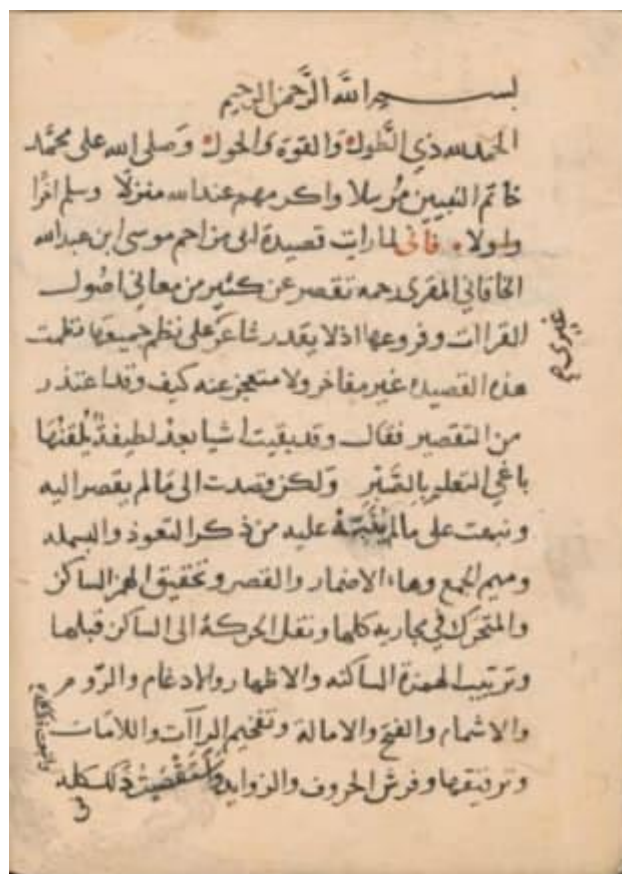 بسم الله الرَّحمن الرحيم
الحمد لله ذي الطَّول والقوة والحول وَصلى الله على محمَّد
خاتم النبيين مُرسلا واكرمهم عند الله منزلًا وسلم اخرًا
واولا فاني لما رايت قصيدة ابى مزاحم موسى ابن عبد الله
الخاقاني المقرى رحمه تقصر عن كثير من معاني اصُول
القراات وفروعها اذ لا يقدر شاعر على نظم جميعها نظمت
هذه القصيده غير مفاخر ولا متعجز عنه كيف وقد اعتذر
من التقصير فقال وقد بقيت اشيا بعدُ لطيفةٌ يُلقنُها
باغي التعلم بالصَّبْر وَلكن قصدت الى مَا لم يقصر اليه
ونبهت على ما لم عليه من ذكر التعوذ والبسمله
وميم الجمع وهاء الاضمار والقصر وتحقيق الهمز الساكن
والمتحرك في مجاريه كلها ونقل الحركة الى الساكن قبلها
وترتيب الهمزة الساكنه والاظهار والادغام والرَّوم
والاشمام والفتح والامالة وتفخيم الراآت واللامَات
وترقيقها وفرش الحروف والزوايد ذلك كله
غيرى